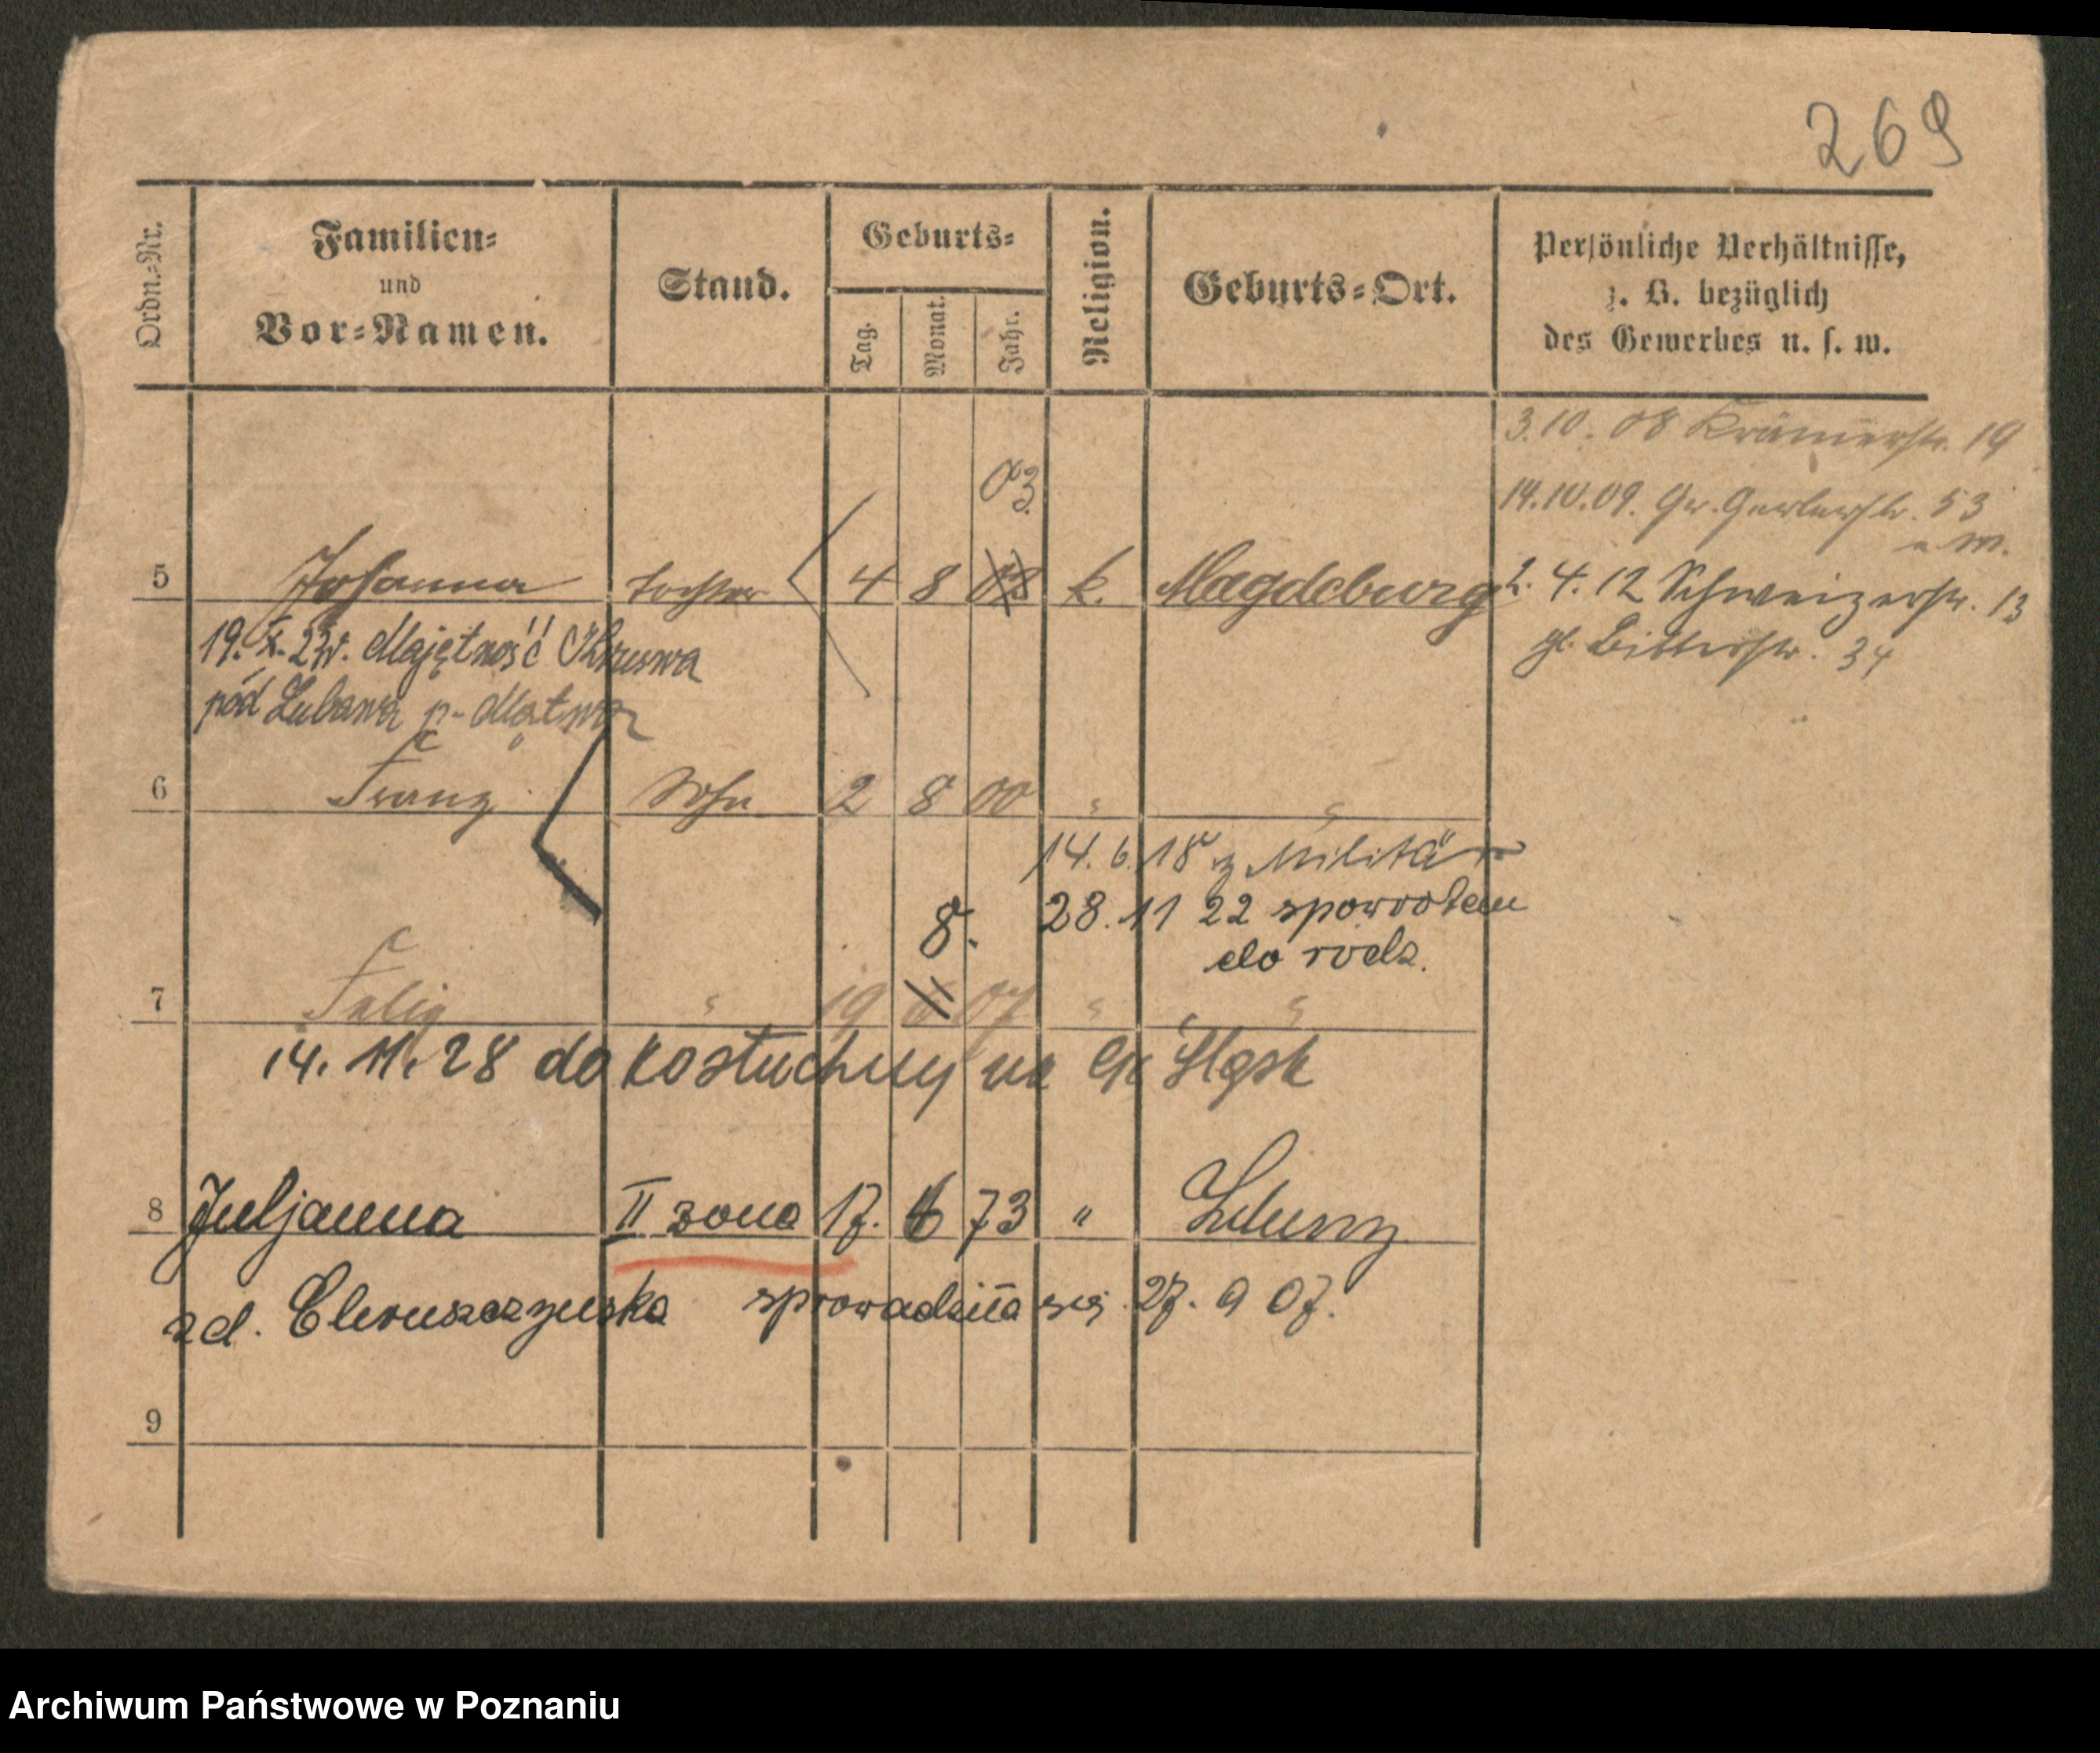 269
Ordn.-Nr.
Familien-
und
Vor-Namen.
Stand.
Geburts-
Tag.
Monat.
Jahr.
Religion.
Geburts-Ort.
Persönliche Verhältnisse,
z. B. bezüglich
des Gewerbes u. s. w.
3.10.08 Krämerstr. 19
14.10.09. Gr. Gerberstr. 53
03
5 Johanna Tochter 4 8 k. Magdeburg
4.12 Schweizerstr. 13
gl. Ritterstr. 34
19. X. Majętność
pod p. Mątwa
6 Franz Sohn 2 8 00 " "
14.6.18 z Militär
28. 11 22 spowrotem
do rodz.
8.
7 Felix " 19 07 " "
14. 11. 28 do Kostuchny na G. Śląsk
8 Juljanna II żona 17. 6 73 " Zduny
zd. sprowadziła się 27. 9 07.
9
Archiwum Państwowe w Poznaniu